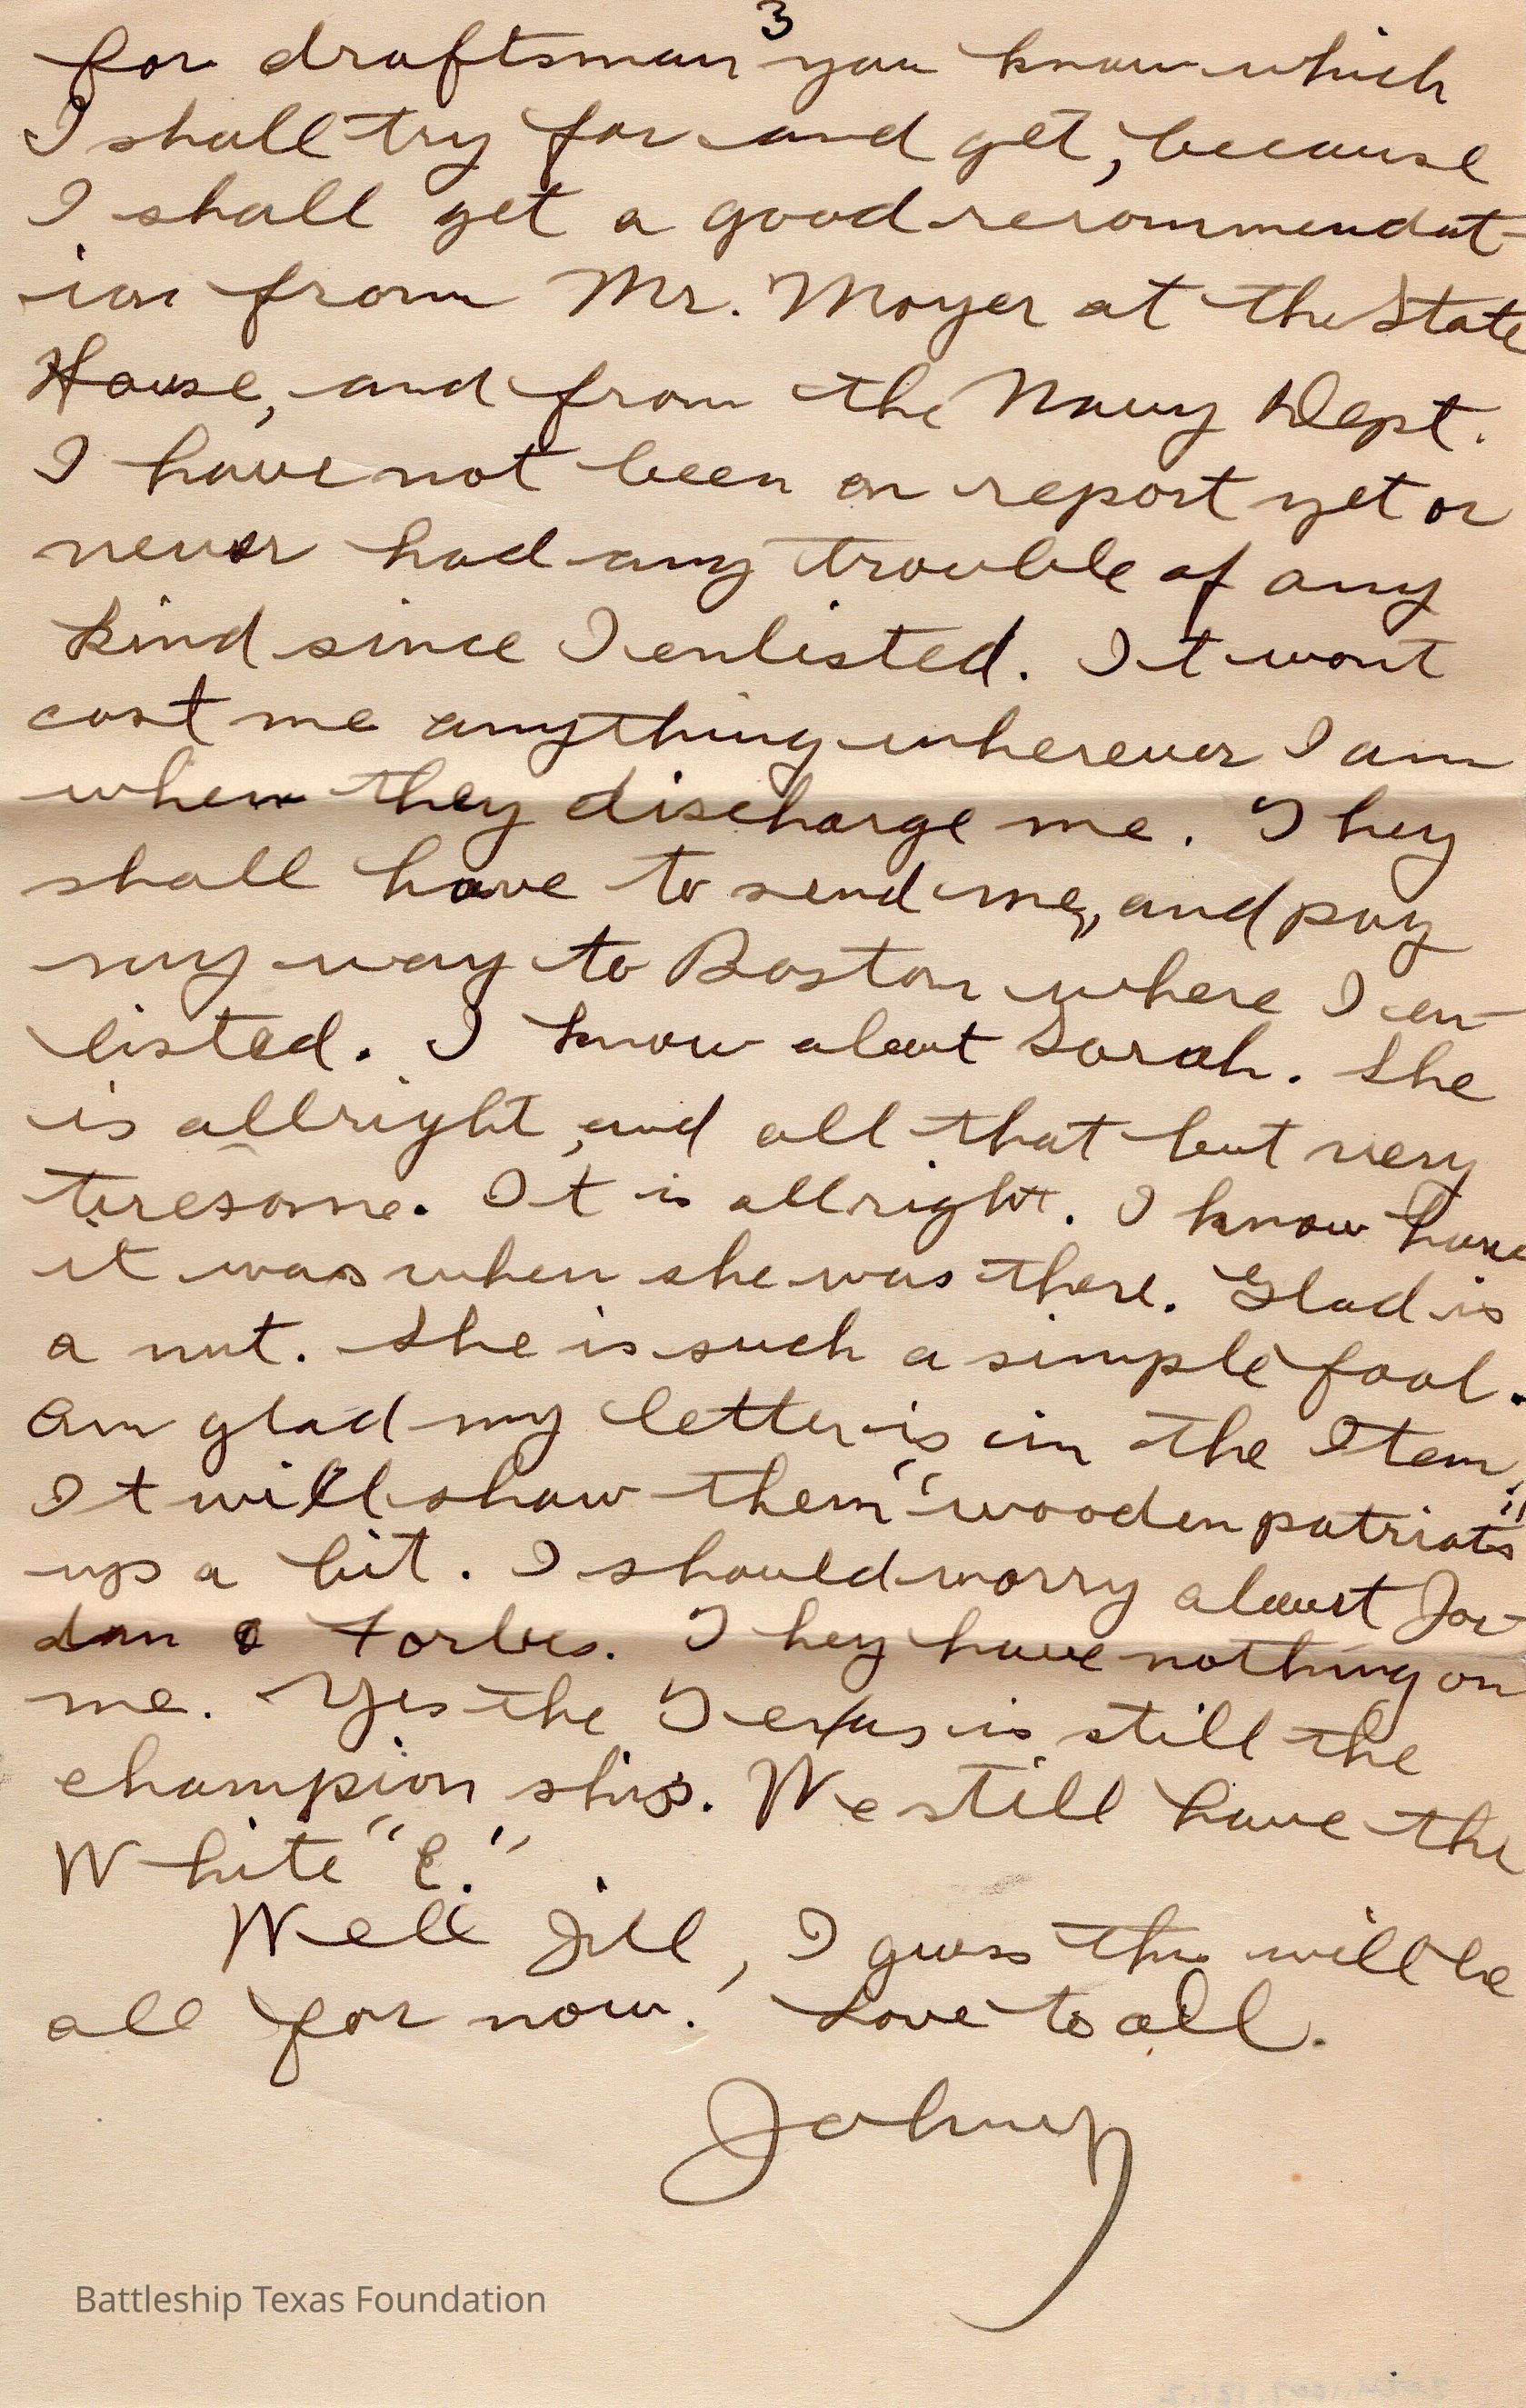 3
for draftsman you know which
I shall try for and get, because
I shall get a good recommendat-
ion from Mr. Moyer at the State
House, and from the Navy Dept.
I have not been on report yet or
never had any trouble of any
kind since I enlisted. It wont
cost me anything wherever I am
when they discharge me. They
shall have to send me, and pay
my way to Boston where I en-
listed. I know about Sarah. She
is allright, and all that but very
tiresome. It is allright. I know how
it was when she was there. Glad is
a nut. She is such a simple fool.
Am glad my letter is in the Item.
It will show them "wooden patriots"
up a bit. I should worry about Jor-
dan & Forbes. They have nothing on
me. Yes the Texas is still the
champion ship. We still have the
White "E."
Well Jill, I guess this will be
all for now. Love to all.
Johnny
Battleship Texas Foundation